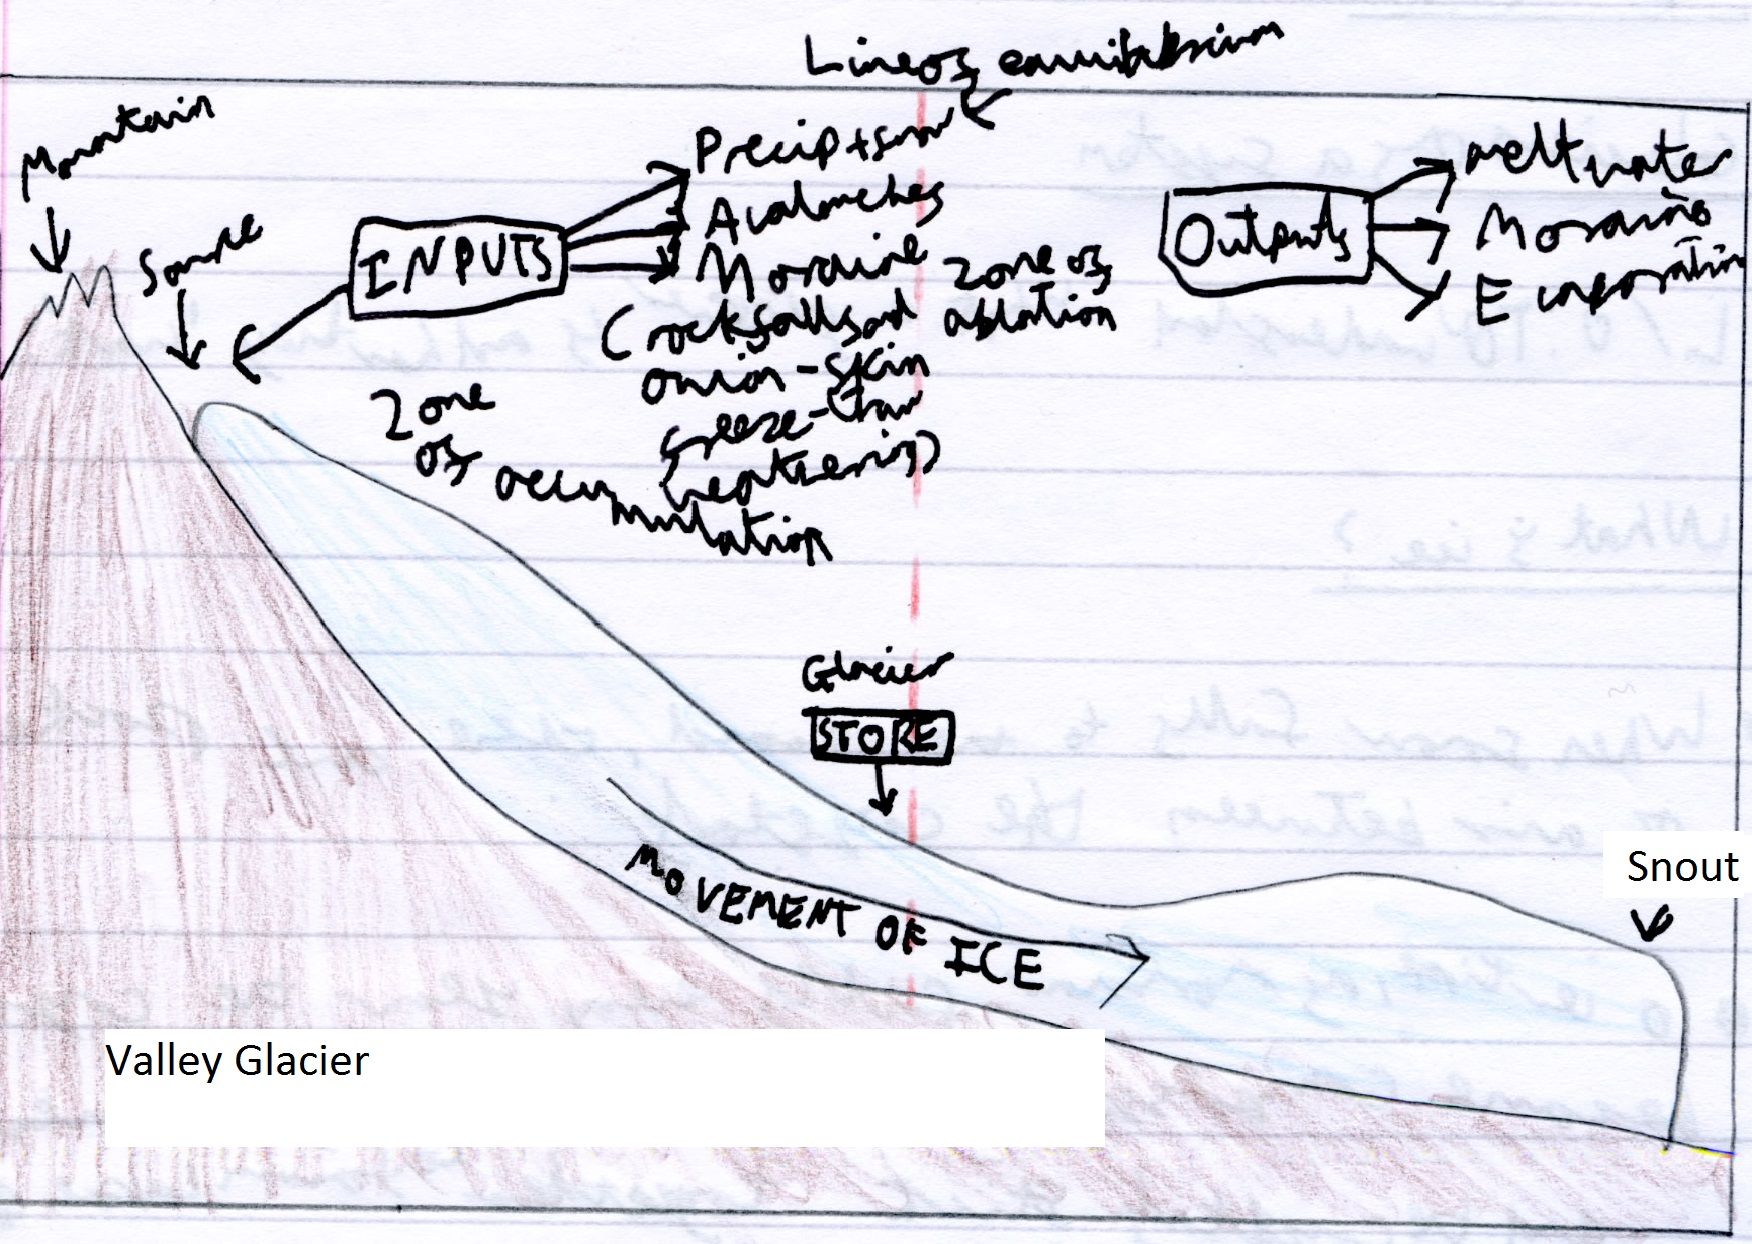 Line of equilibrium
Mountain
Source
INPUTS
Precip + snow
Avalanches
Moraine
(rockfalls and
onion-skin
freeze-thaw
weathering)
Zone of
ablation
Outputs
meltwater
Moraine
Evaporation
Zone
of
accumu
mulation
Glacier
STORE
MOVEMENT OF ICE
Snout
Valley Glacier